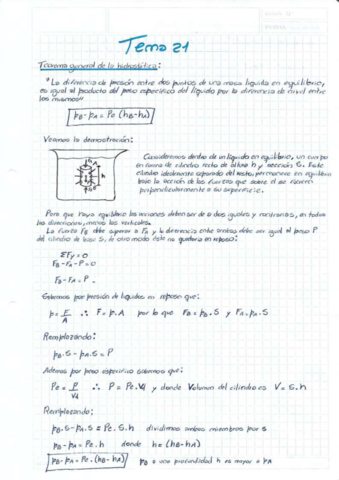 Tema 21
Teorema general de la hidrostática:
"La diferencia de presión entre dos puntos de una masa líquida en equilibrio,
es igual al producto del peso específico del líquido por la diferencia de nivel entre
los mismos"
pB - pA = Pe (hB - hA)
Veamos la demostración:
Consideramos dentro de un líquido en equilibrio, un cuerpo
en forma de cilindro recto de altura h y sección S. Este
cilindro idealmente separado del resto, permanece en equilibrio
bajo la acción de las fuerzas que sobre él se ejercen
perpendicularmente a su superficie.
Para que haya equilibrio las acciones deben ser de a dos iguales y contrarias, en todas
las direcciones, menos las verticales.
La fuerza FB debe superar a FA y la diferencia entre ambas debe ser igual al peso P
del cilindro de base S, de otro modo éste no quedaría en reposo:
ΣFy = 0
FB - FA - P = 0
FB - FA = P.
Sabemos por presión de líquidos en reposo que:
p = F/A ∴ F = p.A por lo que FB = pB.S y FA = pA.S
Remplazando:
pB.S - pA.S = P
Además por peso específico sabemos que:
Pe = P/Vol ∴ P = Pe.Vol y donde Volumen del cilindro es V = S.h
Remplazando:
pB.S - pA.S = Pe.S.h dividimos ambos miembros por S
pB - pA = Pe.h donde h = (hB - hA)
pB - pA = Pe.(hB - hA) pB a una profundidad h es mayor a pA